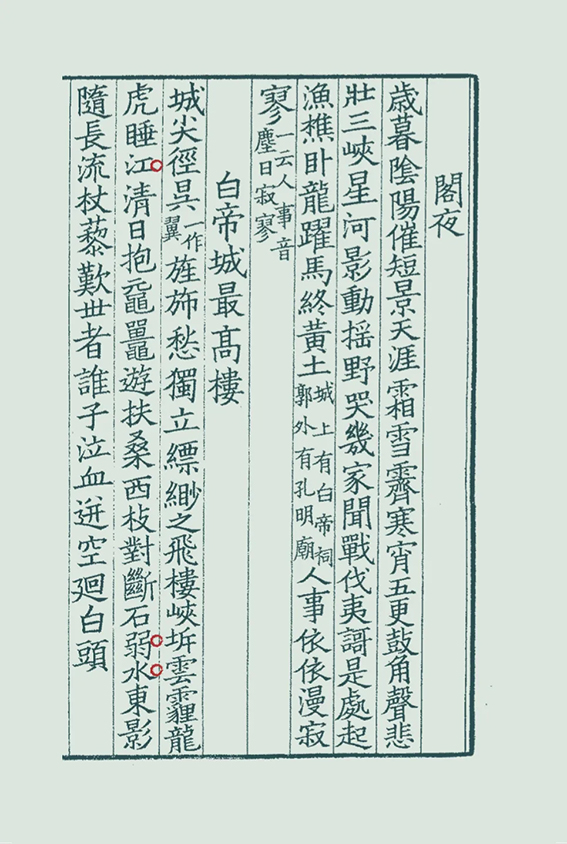 閣夜
歳暮陰陽催短景天涯霜雪霽寒宵五更鼓角聲悲
壯三峽星河影動揺野哭幾家聞戰伐夷謌是處起
漁樵卧龍躍馬終黃土城上有白帝祠郭外有孔明廟人事依依漫寂
寥一云人事音塵日寂寥
白帝城最髙樓
城尖徑吳一作翼旌斾愁獨立縹緲之飛樓峽坼雲霾龍
虎睡江清日抱黿鼉遊扶桑西枝對斷石弱水東影
隨長流杖藜歎世者誰子泣血迸空廻白頭